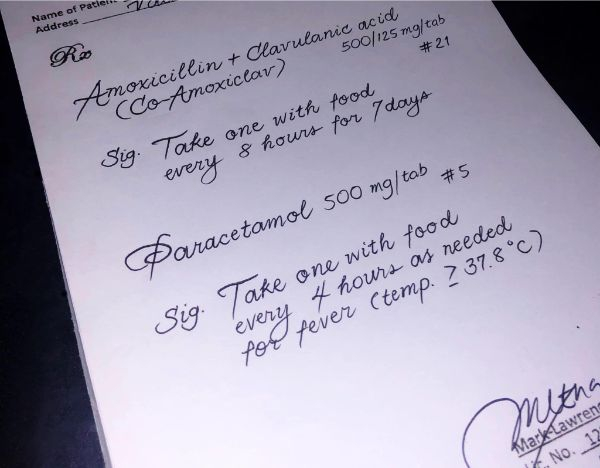 Name of Patient
Address
Rx
Amoxicillin + Clavulanic acid
(Co-Amoxiclav) 500/125 mg/tab
#21
Sig. Take one with food
every 8 hours for 7 days
Paracetamol 500 mg/tab #5
Sig. Take one with food
every 4 hours as needed
for fever (temp. ≥ 37.8°C)
Mark-Lawren
No. 12